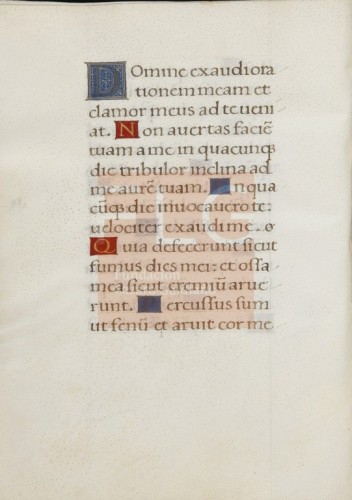 Domine exaudi ora
tionem meam et
clamor meus ad te ueni
at. Non auertas faciē
tuam a me in quacunqȝ
die tribulor inclina ad
me aurē tuam. In qua
cūqȝ die inuocauero te:
uelociter exaudi me.
Quia defecerunt sicut
fumus dies mei: et ossa
mea sicut cremiū arue
runt. Percussus sum
ut fenū et aruit cor me